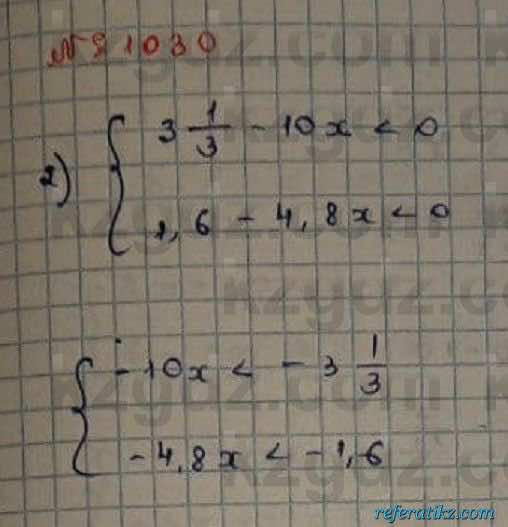 № 1030
2) { 3 1/3 - 10x < 0
1,6 - 4,8x < 0
{ -10x < -3 1/3
-4,8x < -1,6
referatikz.com